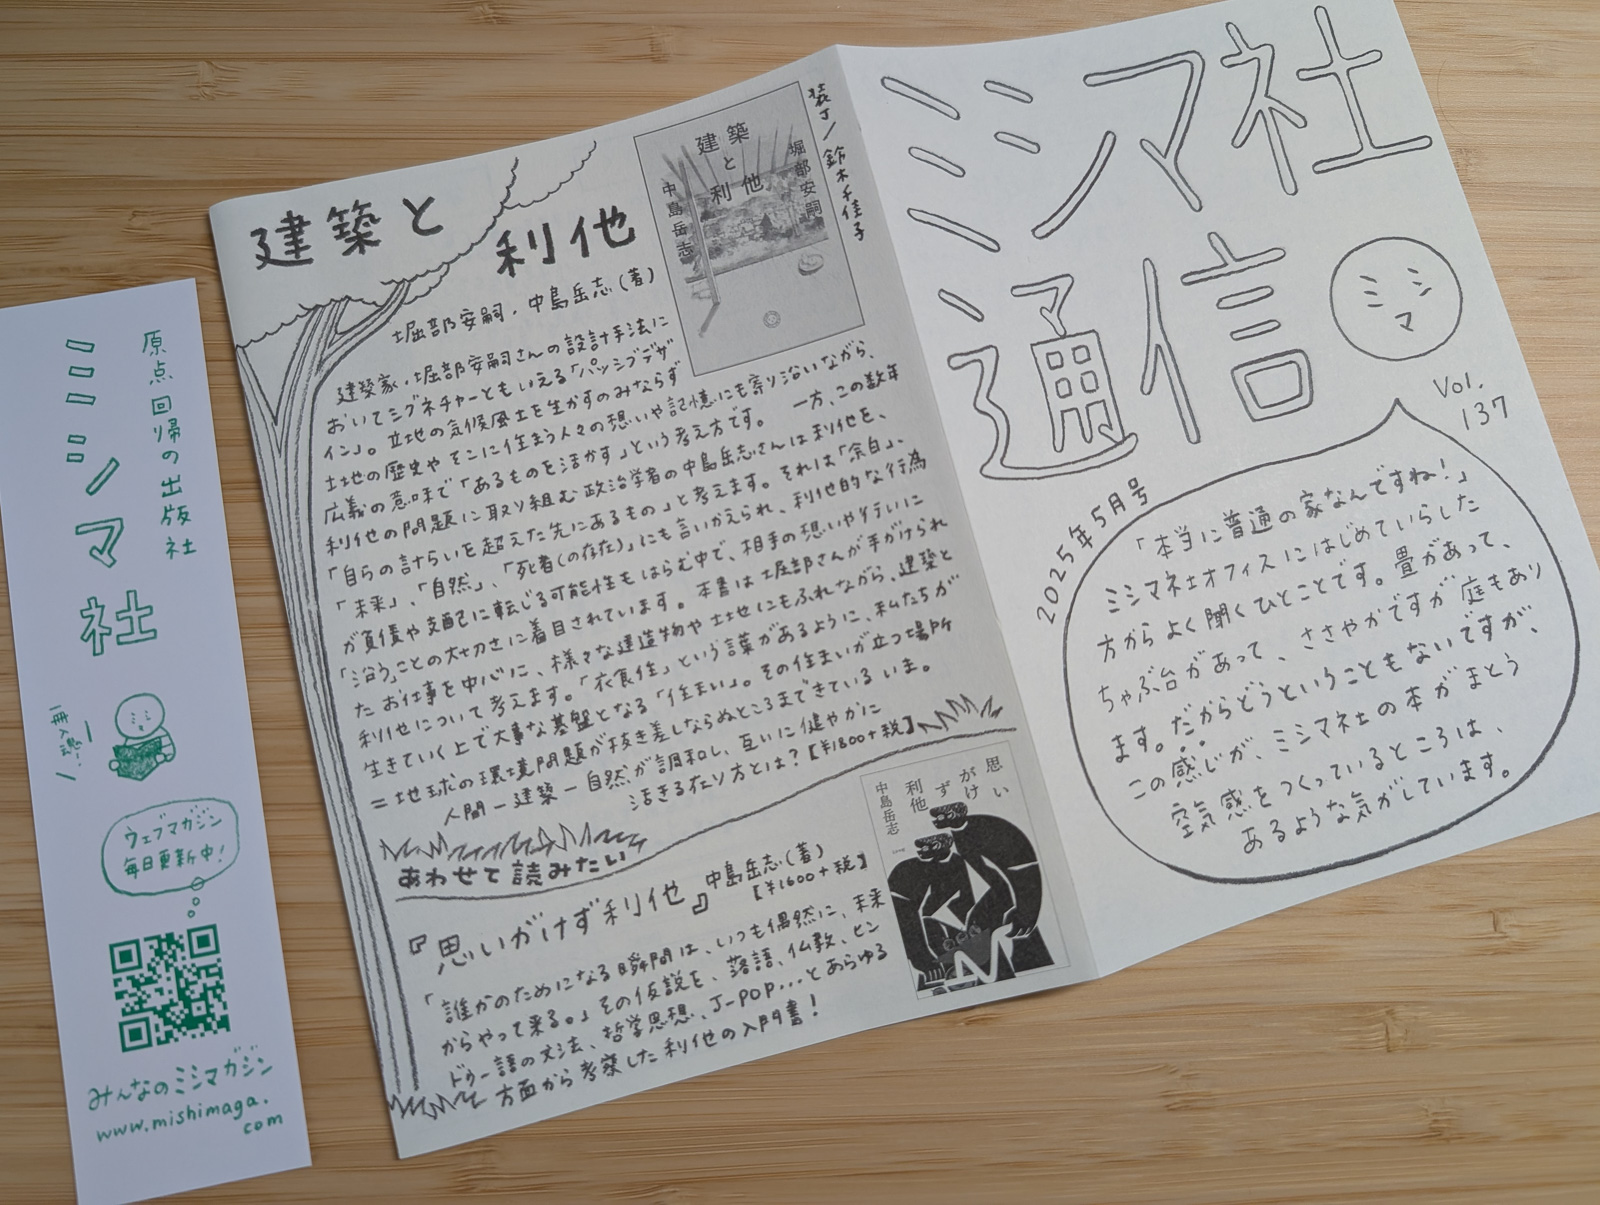 ミシマ社
通信
ミシマ
Vol.
137
2025年5月号
「本当に普通の家なんですね!」
ミシマ社オフィスにはじめていらした
方からよく聞くひとことです。畳があって、
ちゃぶ台があって、ささやかですが庭もあり
ます。だからどうということもないですが、
この感じが、ミシマ社の本がまとう
空気感をつくっているところは、
あるような気がしています。
建築と
利他
堀部安嗣・中島岳志(著)
建築と利他
堀部安嗣
中島岳志
装丁/鈴木千佳子
建築家・堀部安嗣さんの設計手法に
おいてシグネチャーともいえる「パッシブデザ
イン」。立地の気候風土を生かすのみならず
土地の歴史やそこに住まう人々の想いや記憶にも寄り沿いながら、
広義の意味で「あるものを活かす」という考え方です。 一方、この数年
利他の問題に取り組む政治学者の中島岳志さんは利他を、
「自らの計らいを超えた先にあるもの」と考えます。それは「余白」、
「未来」、「自然」、「死者(の存在)」にも言いかえられ、利他的な行為
が負債や支配に転じる可能性もはらむ中で、相手の想いや行いに
「沿う」ことの大切さに着目されています。本書は堀部さんが手がけられ
たお仕事を中心に、様々な建造物や土地にもふれながら、建築と
利他について考えます。「衣食住」という言葉があるように、私たちが
生きていく上で大事な基盤となる「住まい」。その住まいが立つ場所
=地球の環境問題が抜き差しならぬところまできているいま。
人間ー建築ー自然が調和し、互いに健やかに
活きる在り方とは?【¥1800+税】
あわせて読みたい
『思いがけず利他』中島岳志(著)
【¥1600+税】
「誰かのためになる瞬間は、いつも偶然に、未来
からやって来る。」その仮説を、落語、仏教、ヒン
ドゥー語の文法、哲学思想、J-POP...とあらゆる
方面から考察した利他の入門書!
思い
がけ
ず
利他
中島岳志
原点回帰の出版社
ミシマ社
一冊入魂!
ウェブマガジン
毎日更新中!
みんなのミシマガジン
www.mishimaga.
com